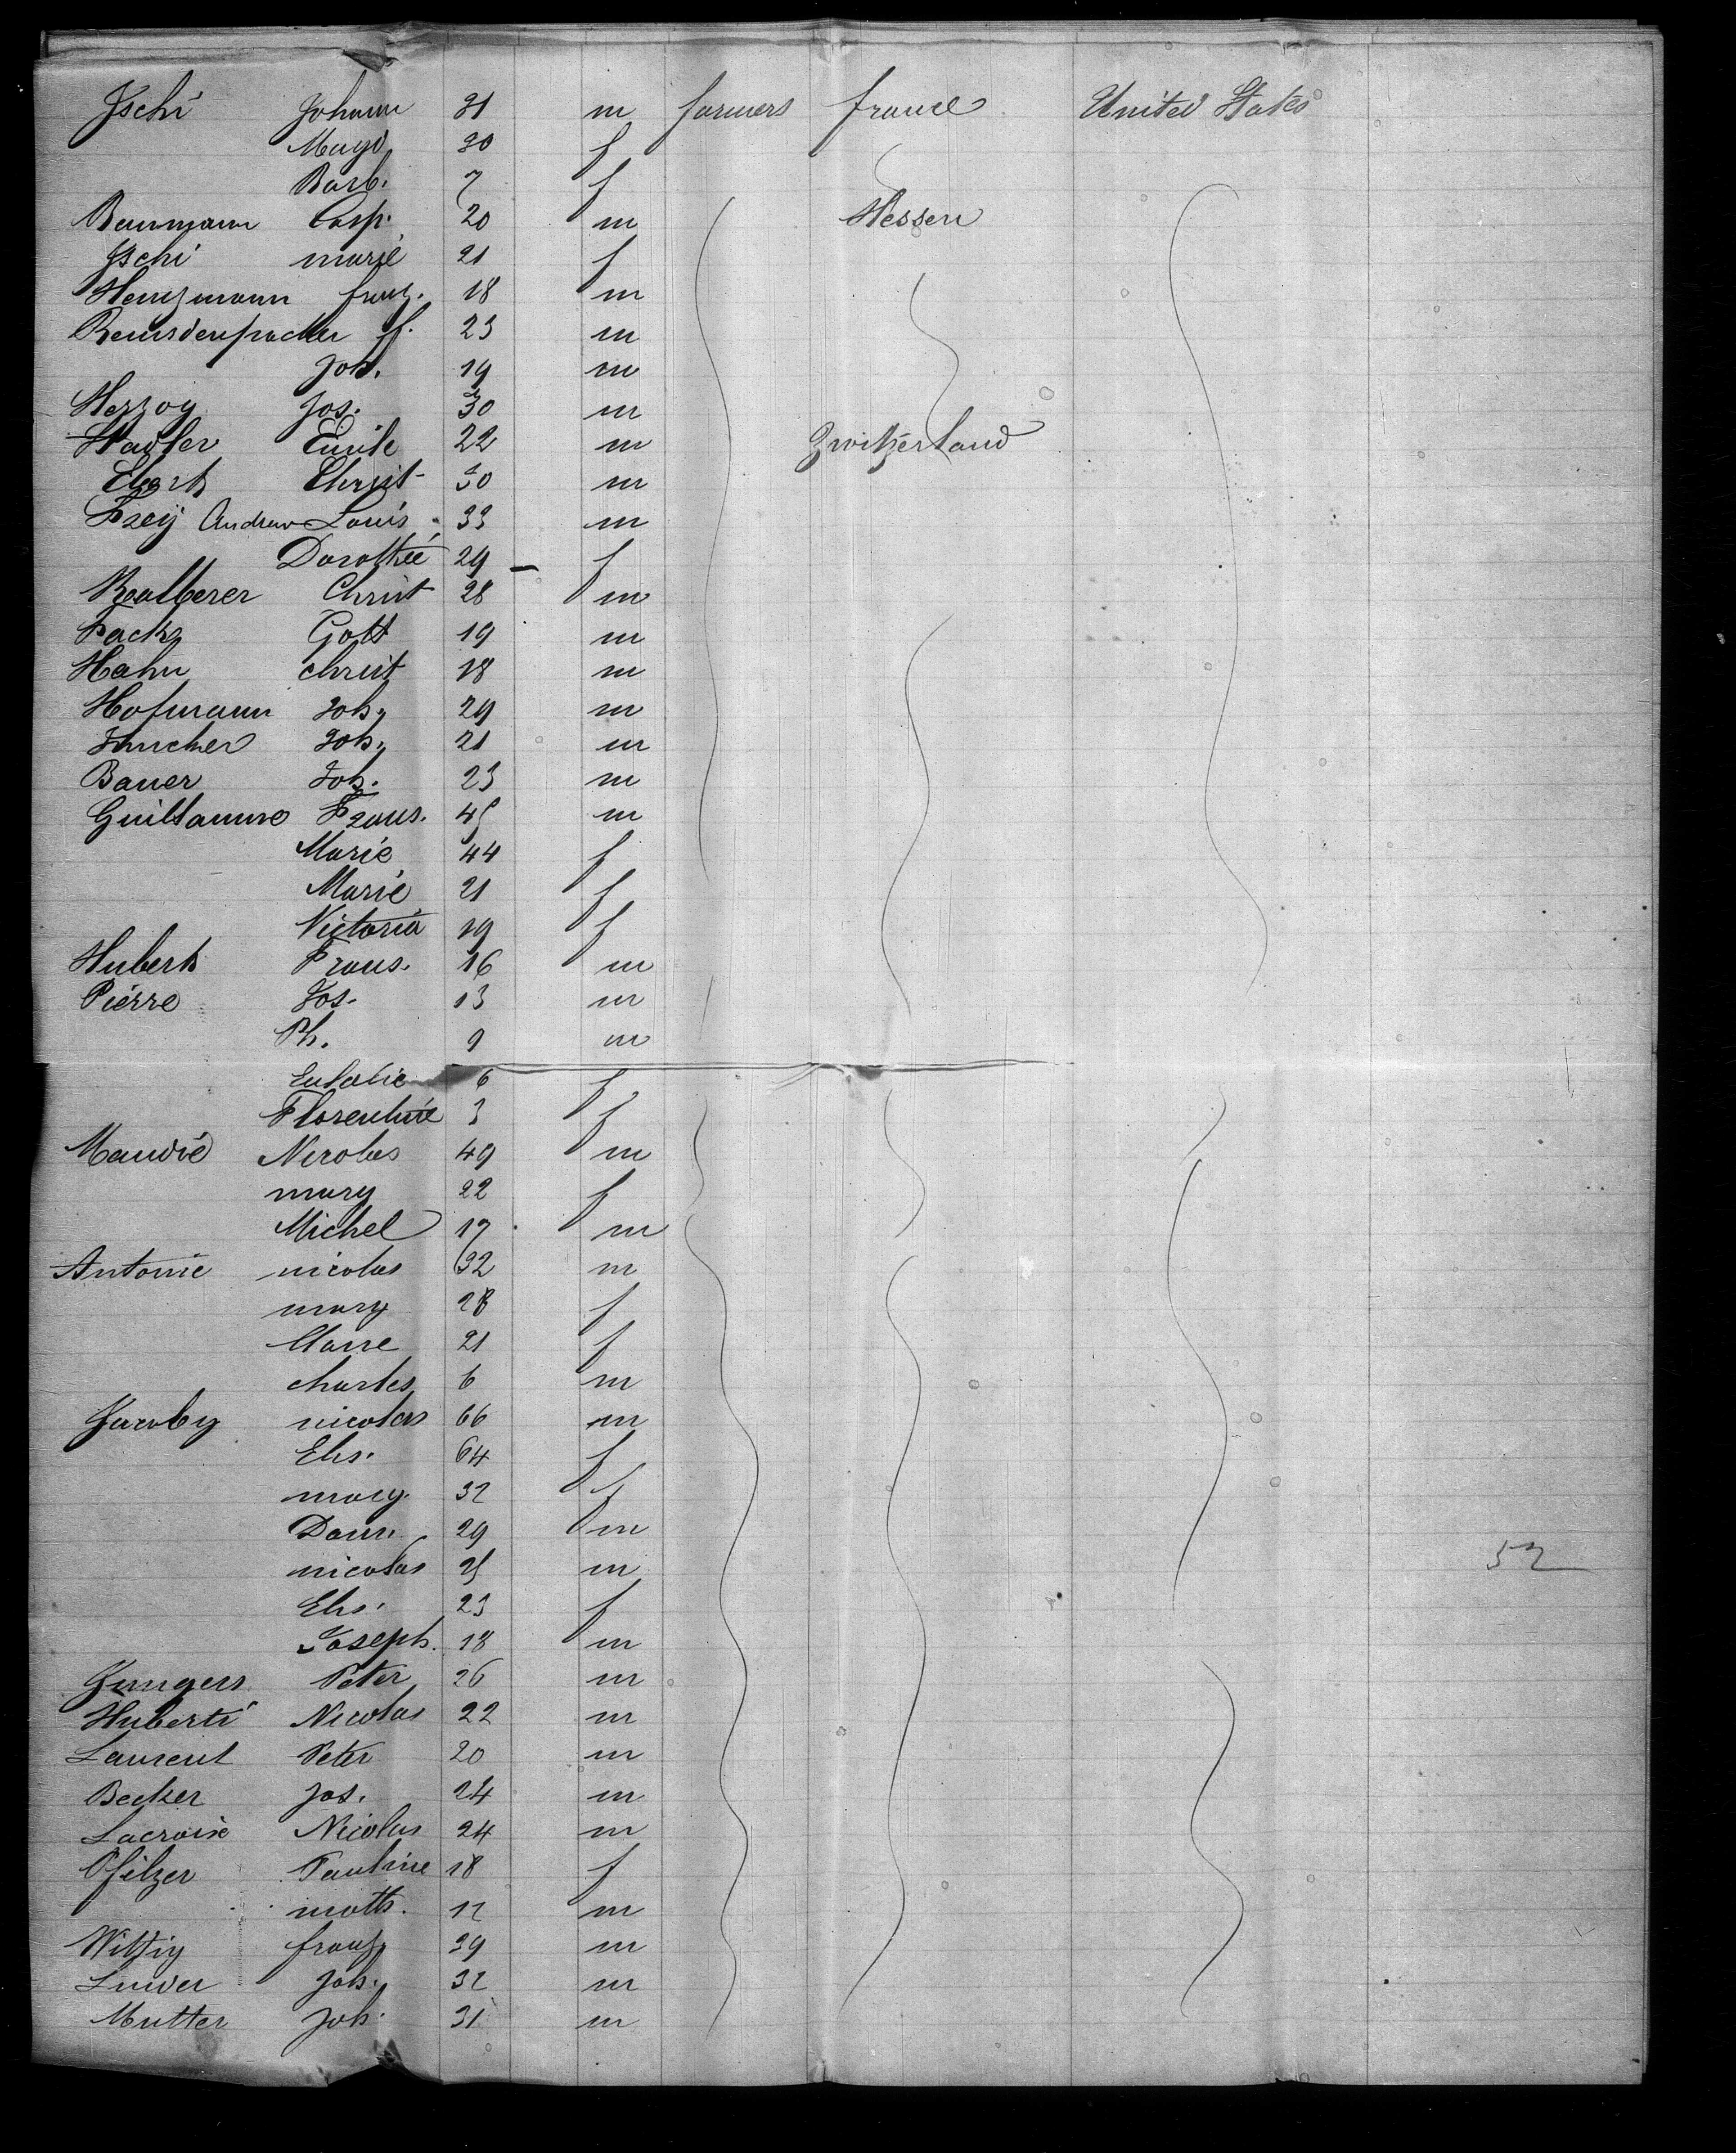 Jschi Johann 31 m farmers france United States
Magd. 30 f
Barb. 7 f
Baumann Casp. 20 m Hessen
Jschi marie 21 f
Henzmann franz. 18 m
f. 23 m
Joh. 19 m
Herzog Jos. 30 m
Stadler Emile 22 m Zwitzerland
Christ 30 m
Frey Andrew Louis 33 m
Dorothée 29 — f
Christ 28 m
Gott 19 m
Hahn christ 18 m
Hofmann Joh. 29 m
Joh. 21 m
Bauer Joh. 23 m
Guillaume Frans. 45 m
Marie 44 f
Marie 21 f
Victoria 19 f
Hubert Frans. 16 m
Pierre Jos. 13 m
Ph. 9 m
Eulalie 6 f
Florentine 3 f
Nicolas 49 m
mary 22 f
Michel 17 m
Antonie nicolas 32 m
mary 28 f
21 f
charles 6 m
Jacoby nicolas 66 m
Elis. 64 f
mary. 32 f
29 m
nicolas 25 m
Elis. 23 f
Joseph. 18 m
Jungers Peter 26 m
Huberti Nicolas 22 m
Laurent Peter 20 m
Becker Jos. 24 m
Lacroix Nicolas 24 m
Pfilzer Pauline 18 f
math. 12 m
Wittig franz 39 m
Joh. 32 m
Mutter Joh. 31 m
52